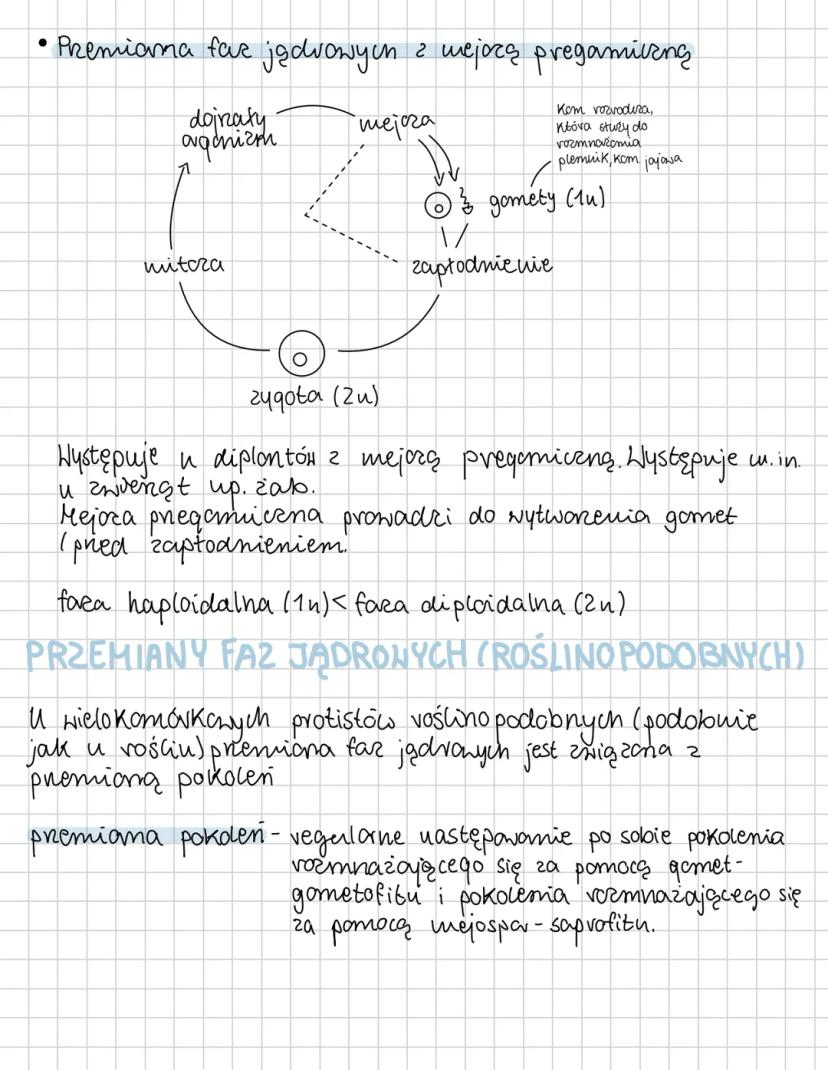 • Przemiana faz jądrowych z mejozą pregamiczną
dojrzały
organizm
mejoza
Kom rozrodcza,
która służy do
rozmnażania
plemnik, kom jajowa
gamety (1n)
mitoza
zapłodnienie
zygota (2n)
Występuje u diplontów z mejozą pregamiczną. Występuje m.in.
u zwierząt np. żab.
Mejoza pregamiczna prowadzi do wytworzenia gamet
(przed zapłodnieniem.
faza haploidalna (1n) < faza diploidalna (2n)
PRZEMIANY FAZ JĄDROWYCH (ROŚLINOPODOBNYCH)
U wielokomórkowych protistów roślinopodobnych (podobnie
jak u roślin) przemiana faz jądrowych jest związana z
przemianą pokoleń
przemiana pokoleń - regularne następowanie po sobie pokolenia
rozmnażającego się za pomocą gamet -
gametofitu i pokolenia rozmnażającego się
za pomocą mejospor - saprofitu.